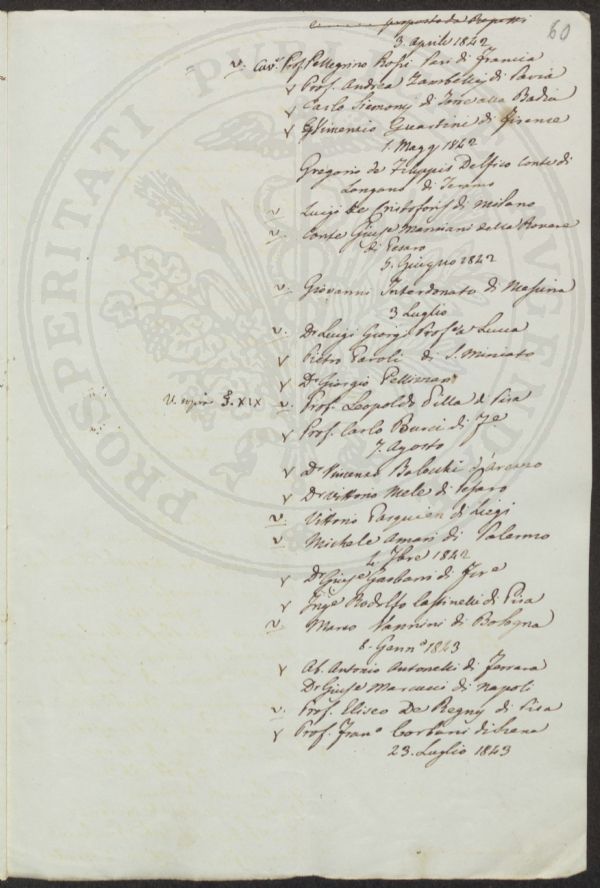 60
proposto da Repetti
3. Aprile 1842
v. Cav. Prof. Pellegrino Rossi Pari di Francia
v Prof. Andrea Zambelli, di Pavia
v Carlo Siemoni di Torre alla Badia
v Vincenzio Guartini di Firenze
1. Magg 1842
Gregorio de Filippis Delfico Conte di
Longano di Teramo
v. Luigi De Cristoforis di Milano
v. Conte Giuse Mamiani della Rovere
di Pesaro
5. Giugno 1842
v. Giovanni Interdonato di Messina
3 Luglio
v. Dr Luigi Giorgi Profe a Lucca
v Pietro Paroli di S. Miniato
v Dr Giorgio Pellizzari
V. S. XIX v. Prof. Leopoldo Pilla a Pisa
v Prof. Carlo Burci di Fe
7. Agosto
v Dr Vincenzo
v Dr Vittorio Mele di Pesaro
v. Vittorio Pasquien di Liegi
v. Michele Amari di Palermo
4 7bre 1842
v Dr Giuse Gasbarri di Fire
v Inge Rodolfo Castinelli di Pisa
v. Marco Vannini di Bologna
8. Genno 1843
v Ab. Antonio Antonelli di Ferrara
Dr Giuse Marcucci di Napoli
v. Prof. Eliseo De Regny di Pisa
v Prof. Frano Corbani di Siena
23. Luglio 1843
PROSPERITATI PUBLICAE AUGENDAE